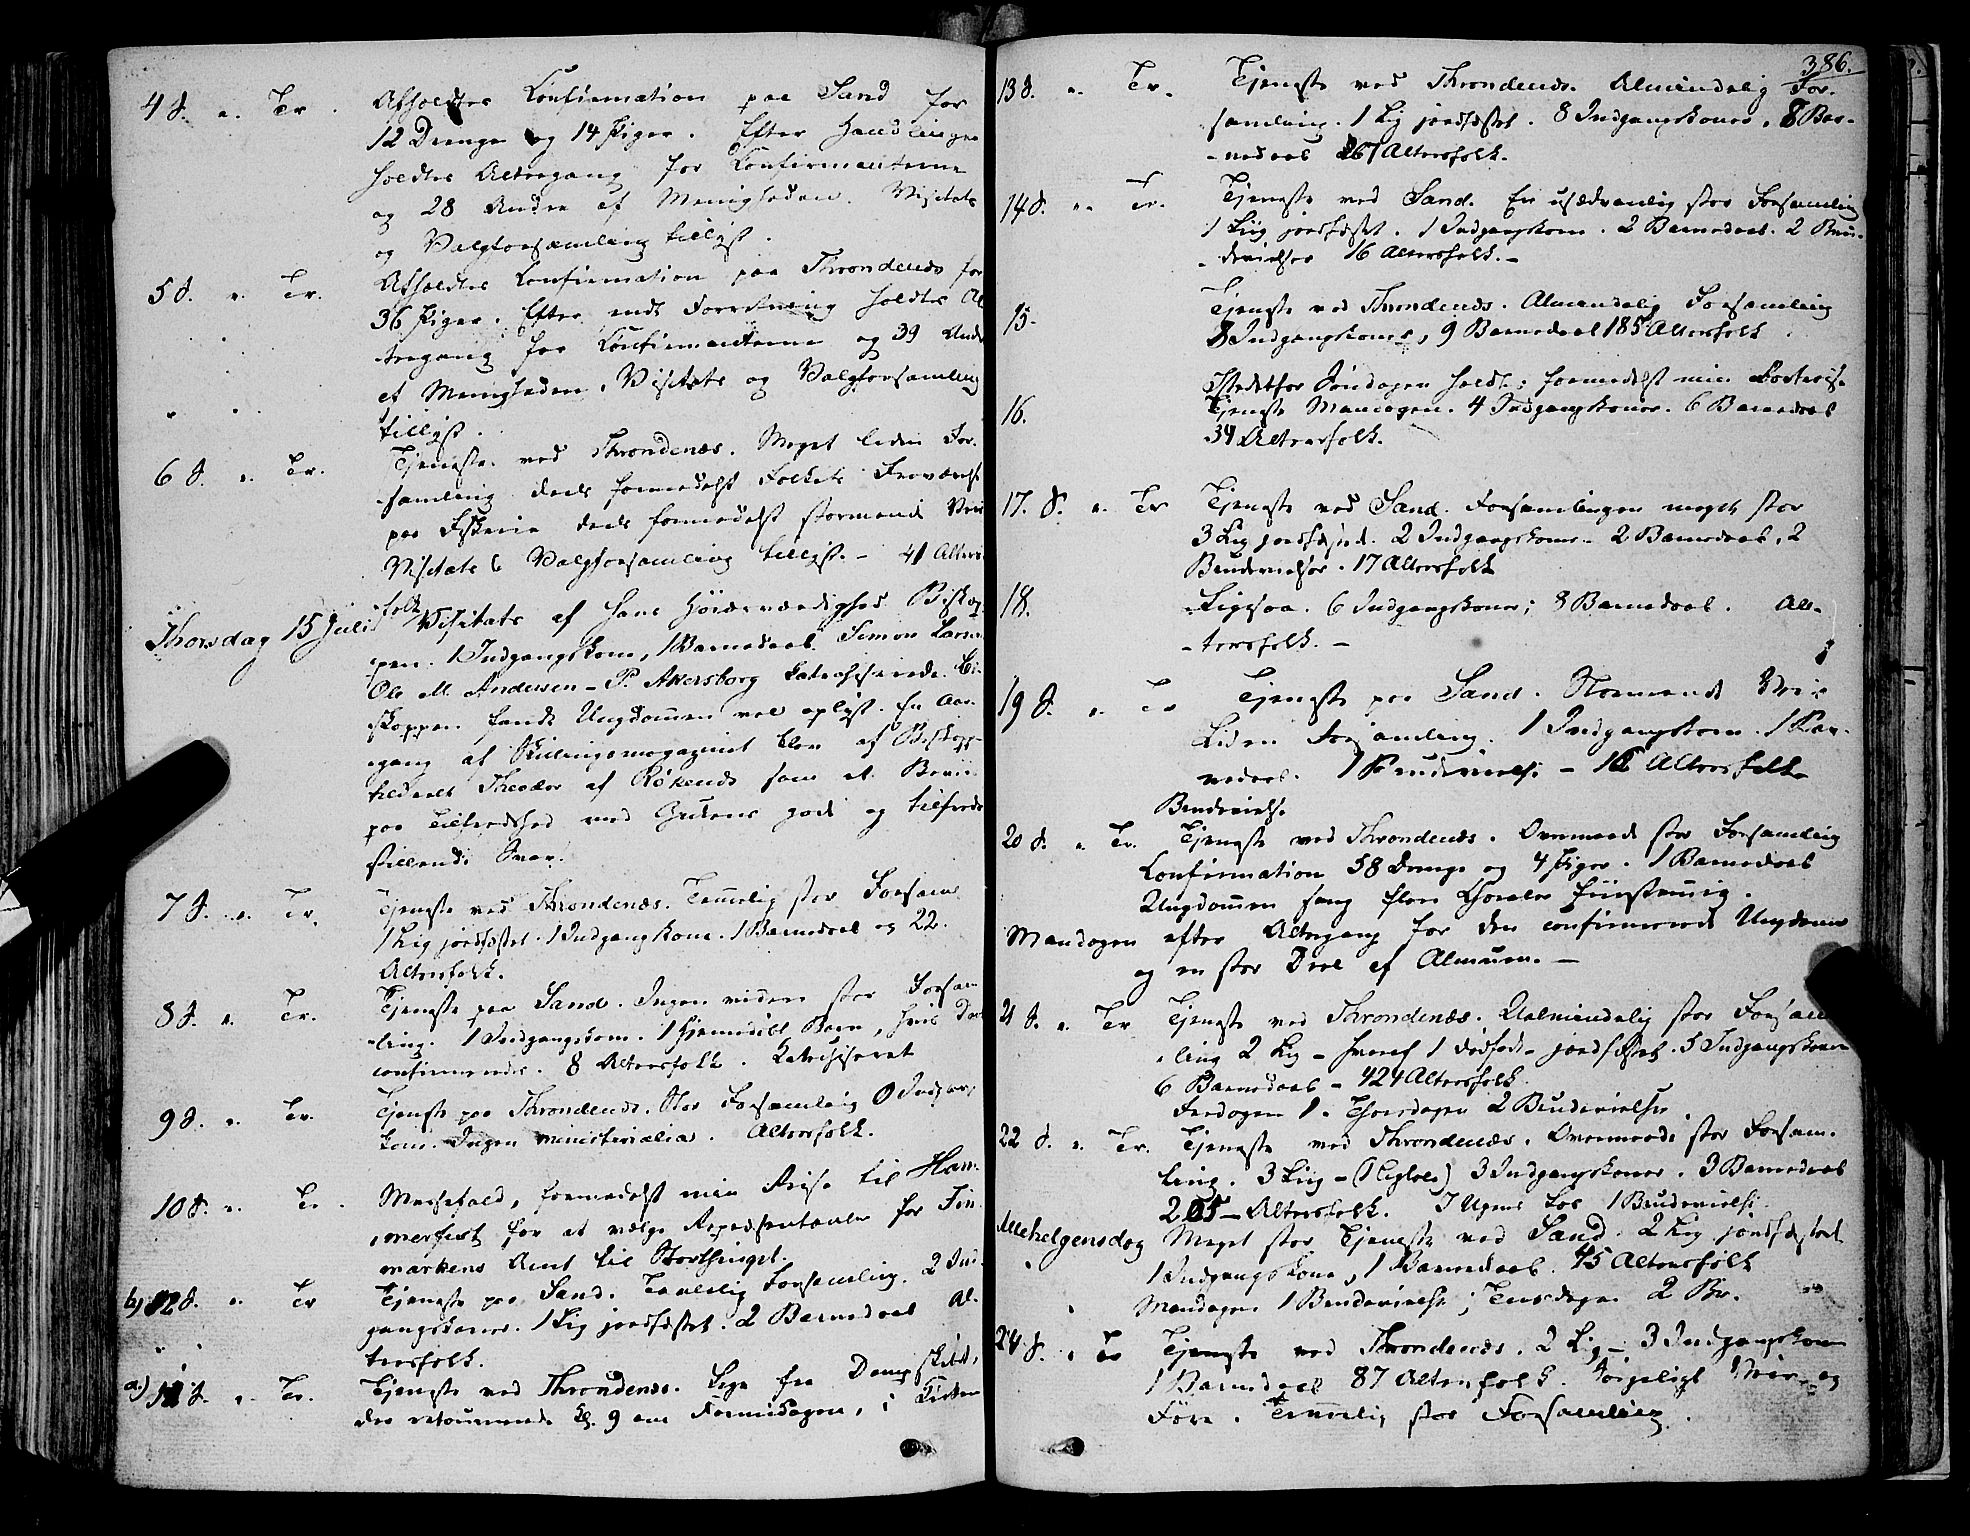 4 S. e. Tr. Afholdtes Confirmation paa Sand for
12 Drenge og 14 Piger. Efter Handlingen
holdtes Altergang for Confirmanterne
og 28 Andre af Menigheden. Visitats
og Valgforsamling tillyst.
5 S. e. Tr. Afholdtes Confirmation paa Throndenæs for
36 Piger. Efter endt Forretning holdtes Al-
tergang for Confirmanterne og 39 Andre
af Menigheden. Visitats og Valgforsamling
tillyst.
6 S. e. Tr. Tjeneste ved Throndenæs. Meget liden For-
samling deels formedelst Folkets Fraværelse
paa Fiskerie deels formedelst stormende Veir
Visitats & Valgforsamling tillyst. – 41 Alters-
folk
Thorsdag 15 Juli Visitats af Hans Høiærværdighed Biskop-
pen. 1 Indgangskone, 1 Barnedaab. Simon Larsen
Ole M. Andersen – P. Akersborg katechiserede. Bi-
skoppen fandt Ungdommen vel oplyst. En Aar-
gang af Skillingsmagazinet blev af Biskoppen
tildeelt Theodor af Røkenæs som et Beviis
paa Tilfredshed med Guttens gode og tilfreds-
stillende Svar.
7 S. e. Tr. Tjeneste ved Throndenæs. Temmelig stor Forsam.
1 Lig jordfæstet. 1 Indgangskone. 1 Barnedaab og 22
Altersfolk.
8 S. e. Tr. Tjeneste paa Sand. Ingen videre stor Forsam-
ling. 1 Indgangskone. 1 hjemdøbt Barn, hvis Daab
confirmeredes. 8 Altersfolk. Katechiseret
9 S. e. Tr. Tjeneste paa Throndenæs. Stor Forsamling 0 Indgangs-
kone. Ingen ministerialia. Altersfolk.
10 S. e. Tr. Messefald, formedelst min Reise til Ham-
merfest for at vælge Repræsentanter for Fin-
markens Amt til Storthinget.
b) 12 S. e. Tr Tjeneste paa Sand. Forsamling. 2 Ind-
gangskoner. 1 Lig jordfæstet. 2 Barnedaab Al-
tersfolk.
a) 11 S. e. Tr. Tjeneste ved Throndenæs. Dampskibet,
der retournerede Kl. 9 om Formiddagen, i Kirken
386.
13 S. e. Tr. Tjeneste ved Throndenæs. Almindelig For-
samling. 1 Lig jordfæstet. 8 Indgangskoner. 8 Bar-
nedaab 261 Altersfolk.
14 S. e. Tr. Tjeneste ved Sand. En usædvanlig stor Forsamling
1 Liig jordfæstet. 1 Indgangskone. 2 Barnedaab. 2 Bru-
devielser 16 Altersfolk. –
15. Tjeneste ved Throndenæs. Almindelig Forsamling
8 Indgangskoner, 9 Barnedaab 185 Altersfolk
Istedetfor Søndagen holdtes formedelst min
16. Tjeneste Mandagen. 4 Indgangskoner. 6 Barnedaab
34 Altersfolk.
17. S. e. Tr Tjeneste ved Sand. Forsamlingen meget stor
3 Lig jordfæstet. 2 Indgangskoner. 2 Barnedaab, 2
Brudevielser. 17 Altersfolk
18. Ligesaa. 6 Indgangskoner; 8 Barnedaab. Al-
tersfolk. –
19 S. e. Tr Tjeneste paa Sand. Stormende Veir
Liden Forsamling. 1 Indgangskone. 1 Bar-
nedaab. 1 Brudevielse – 16 Altersfolk
Brudevielse
20 S. e. Tr. Tjeneste ved Throndenæs. Overmaade stor Forsamling
Confirmation 38 Drenge og 4 Piger. 1 Barnedaab
Ungdommen sang flere Choraler fiirstemmig.
Mandagen efter Altergang for den confirmerede Ungdom
og en stor Deel af Almuen. –
21 S. e. Tr Tjeneste ved Throndenæs. Ualmindelig stor Forsam-
ling 2 Lig – hvoraf 1 dødfødt – jordfæstet. 5 Indgangskoner
6 Barnedaab – 424 Altersfolk.
Fredagen 1. Thorsdagen 2 Brudevielser.
22 S. e. Tr. Tjeneste ved Throndenæs. Overmaade stor Forsam-
ling. 3 Liig – 3 Indgangskoner. 3 Barnedaab
205 – Altersfolk. 1 Brudevielse
Allehelgensdag Meget stor Tjeneste ved Sand. 2 Lig jordfæstet
1 Indgangskone, 1 Barnedaab. 45 Altersfolk
Mandagen 1 Brudevielse; Tirsdagen 2 Br.
24 S. e. Tr Tjeneste ved Throndenæs. 2 Lig – 3 Indgangskoner
1 Barnedaab 87 Altersfolk. Veir og
Føre. Temmelig stor Forsamling.